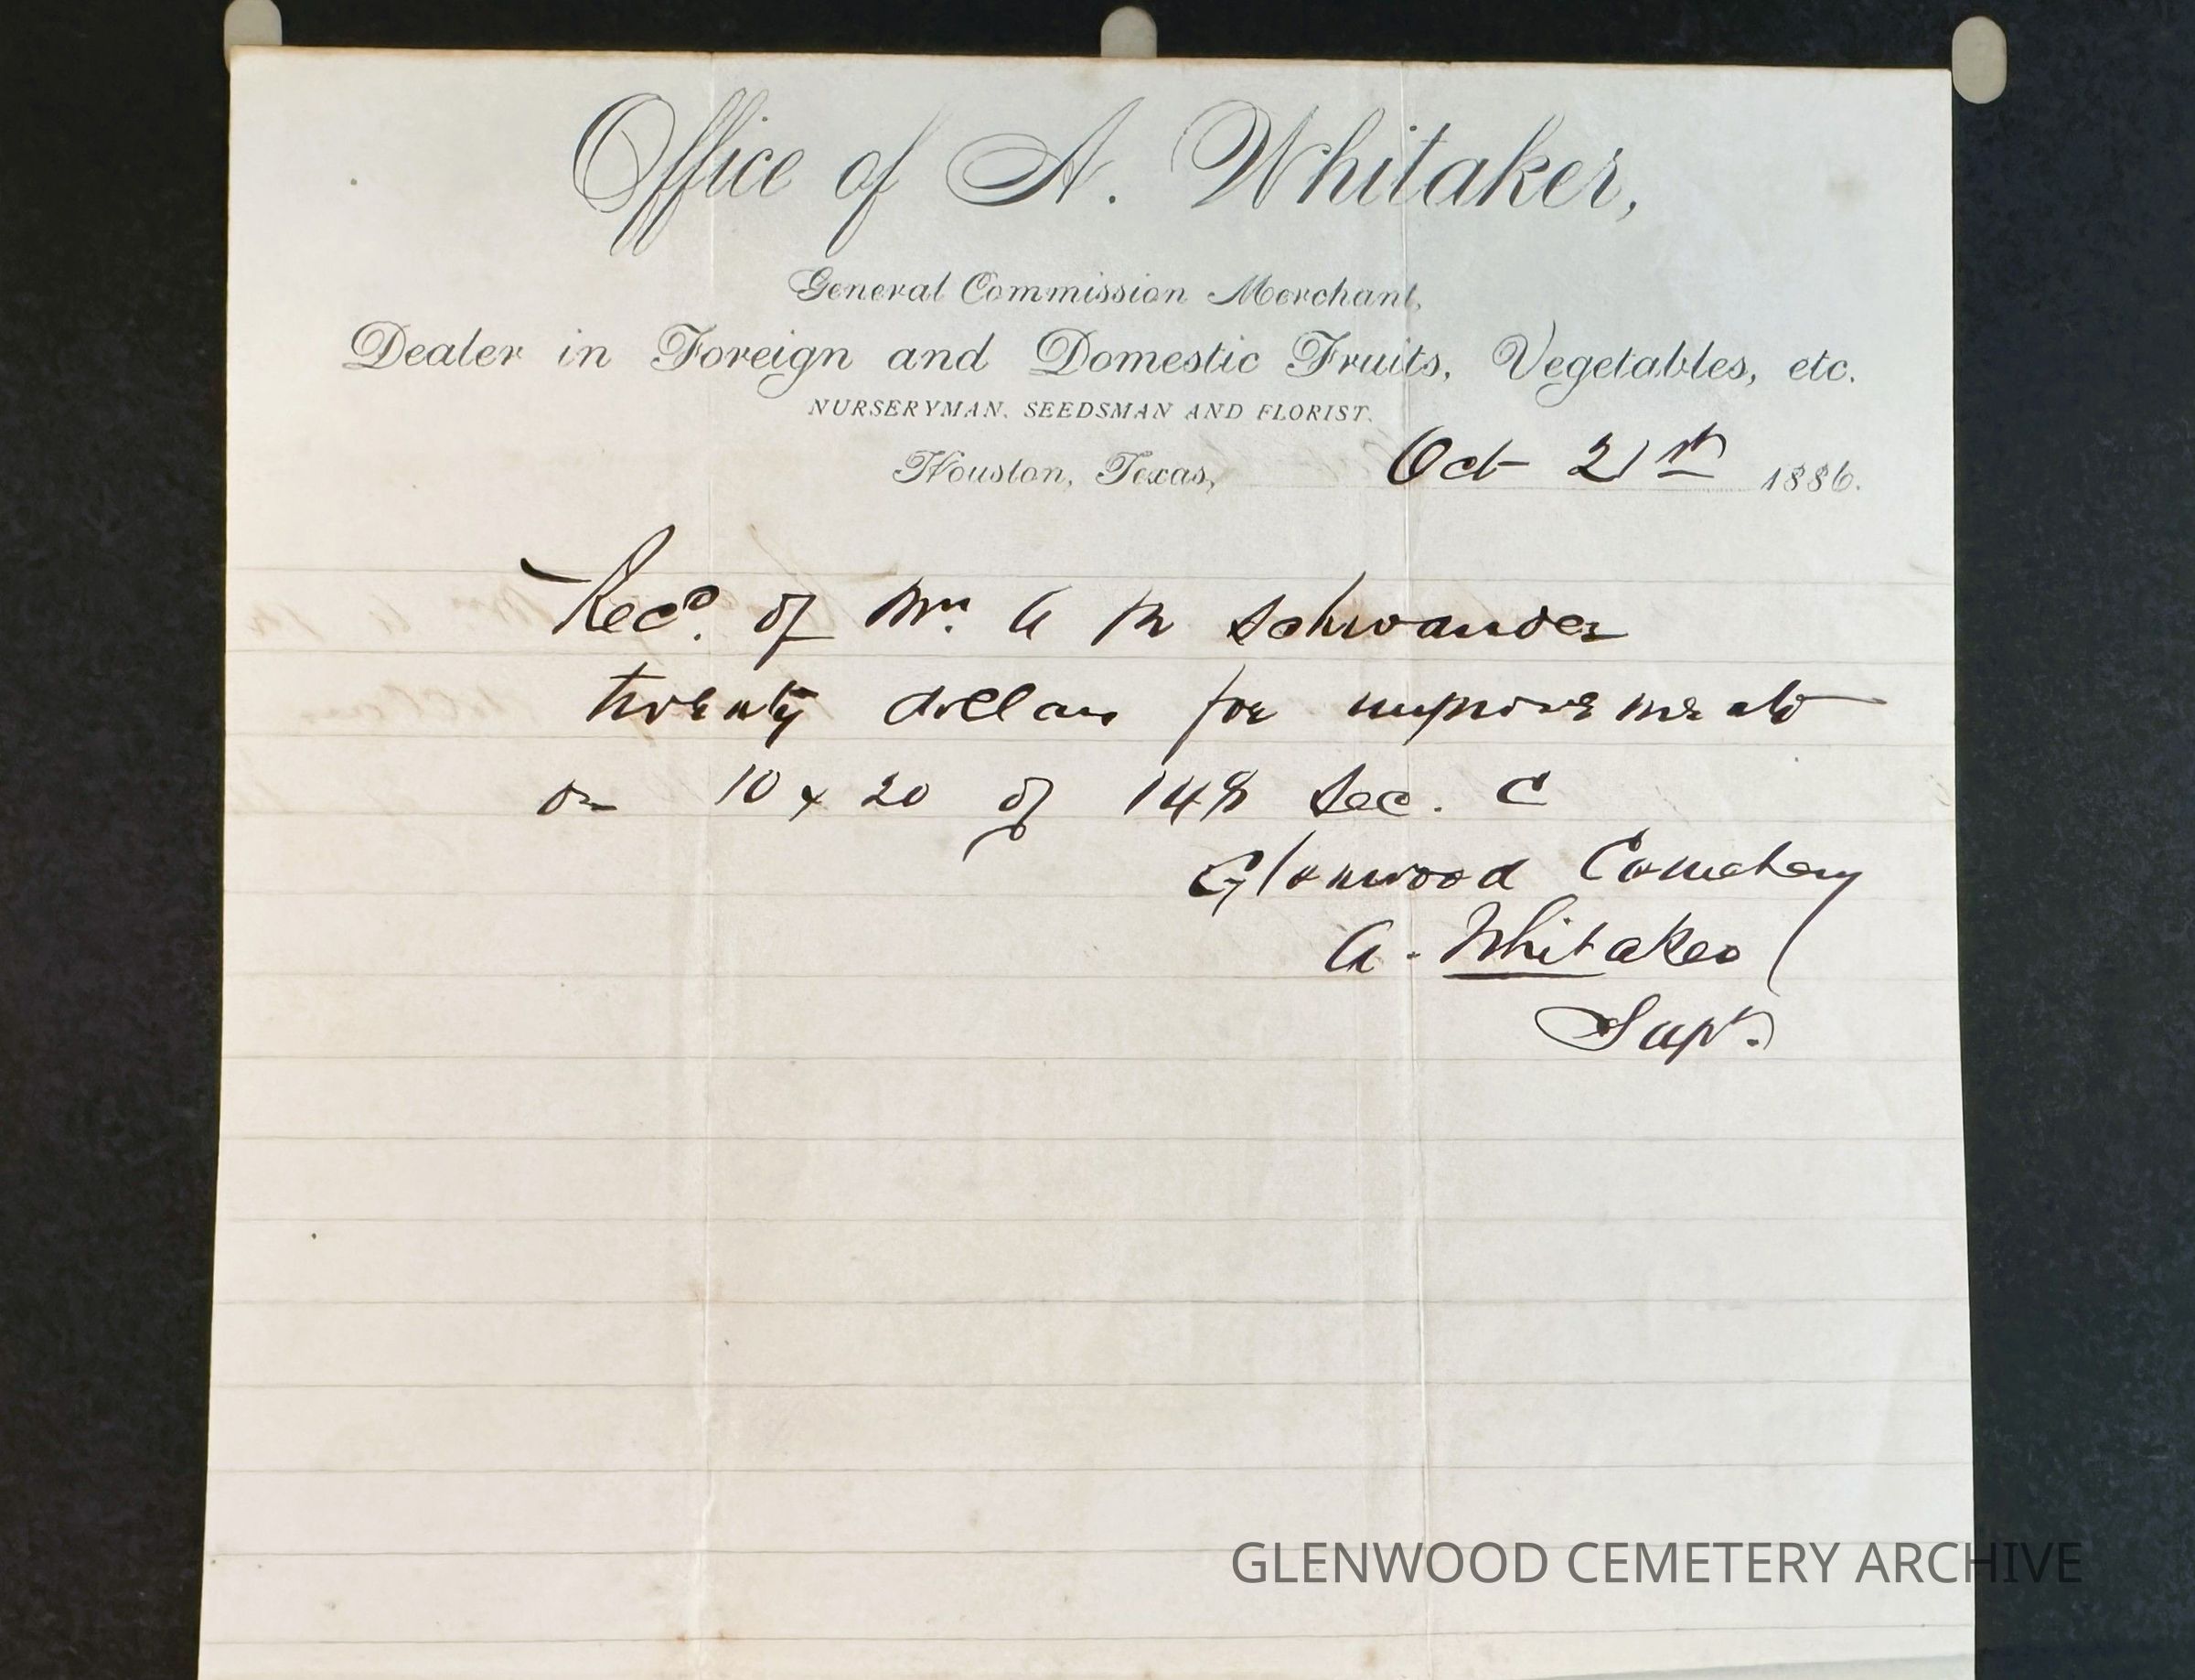 Office of A. Whitaker,
General Commission Merchant,
Dealer in Foreign and Domestic Fruits, Vegetables, etc.
NURSERYMAN, SEEDSMAN AND FLORIST.
Houston, Texas, Oct 21st 1886.
Recd. of Mr. A Schwander
twenty dollars for improvements
on 10 x 20 of 148 Sec. C
Glenwood Cemetery
A. Whitaker
Supt.
GLENWOOD CEMETERY ARCHIVE